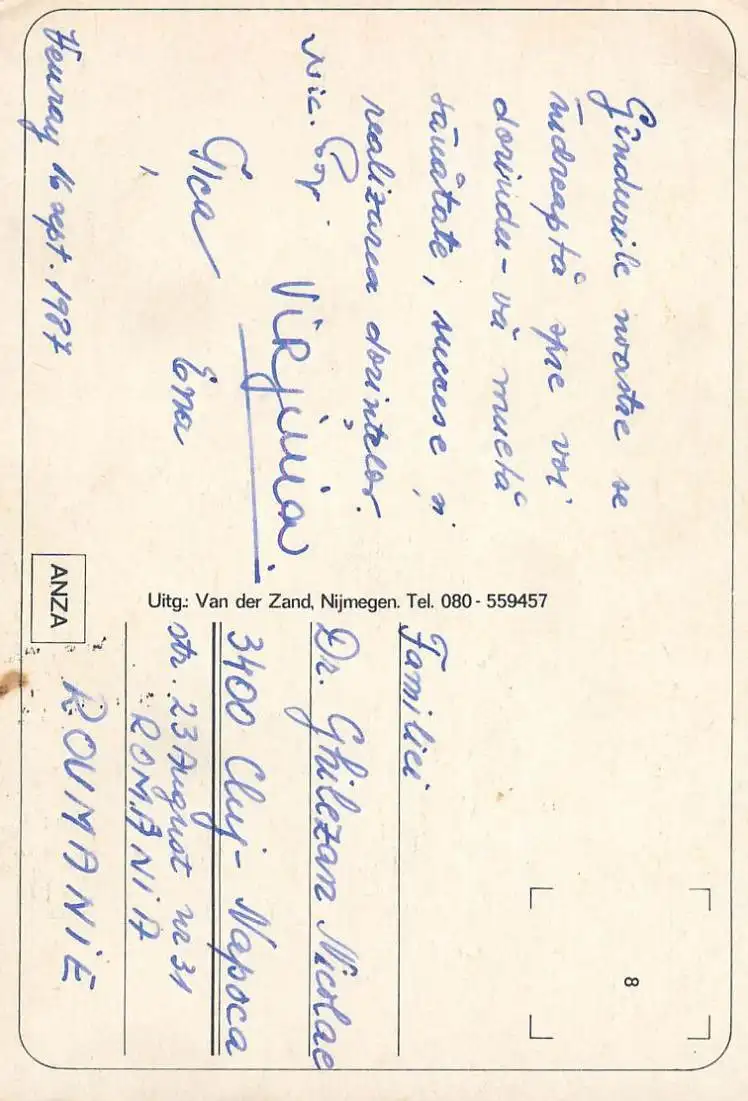 Gîndurile noastre se
îndreaptă spre voi
dorindu-vă multă
sănătate, succese și
realizarea dorințelor.
Nic. Pop
Virginia
Tica
Ena
Venray 16 sept. 1987
Uitg.: Van der Zand, Nijmegen. Tel. 080-559457
ANZA
8
Familiei
Dr. Ghilezan Nicolae
3400 Cluj-Napoca
str. 23 August nr 31
ROMANIA
ROUMANIE